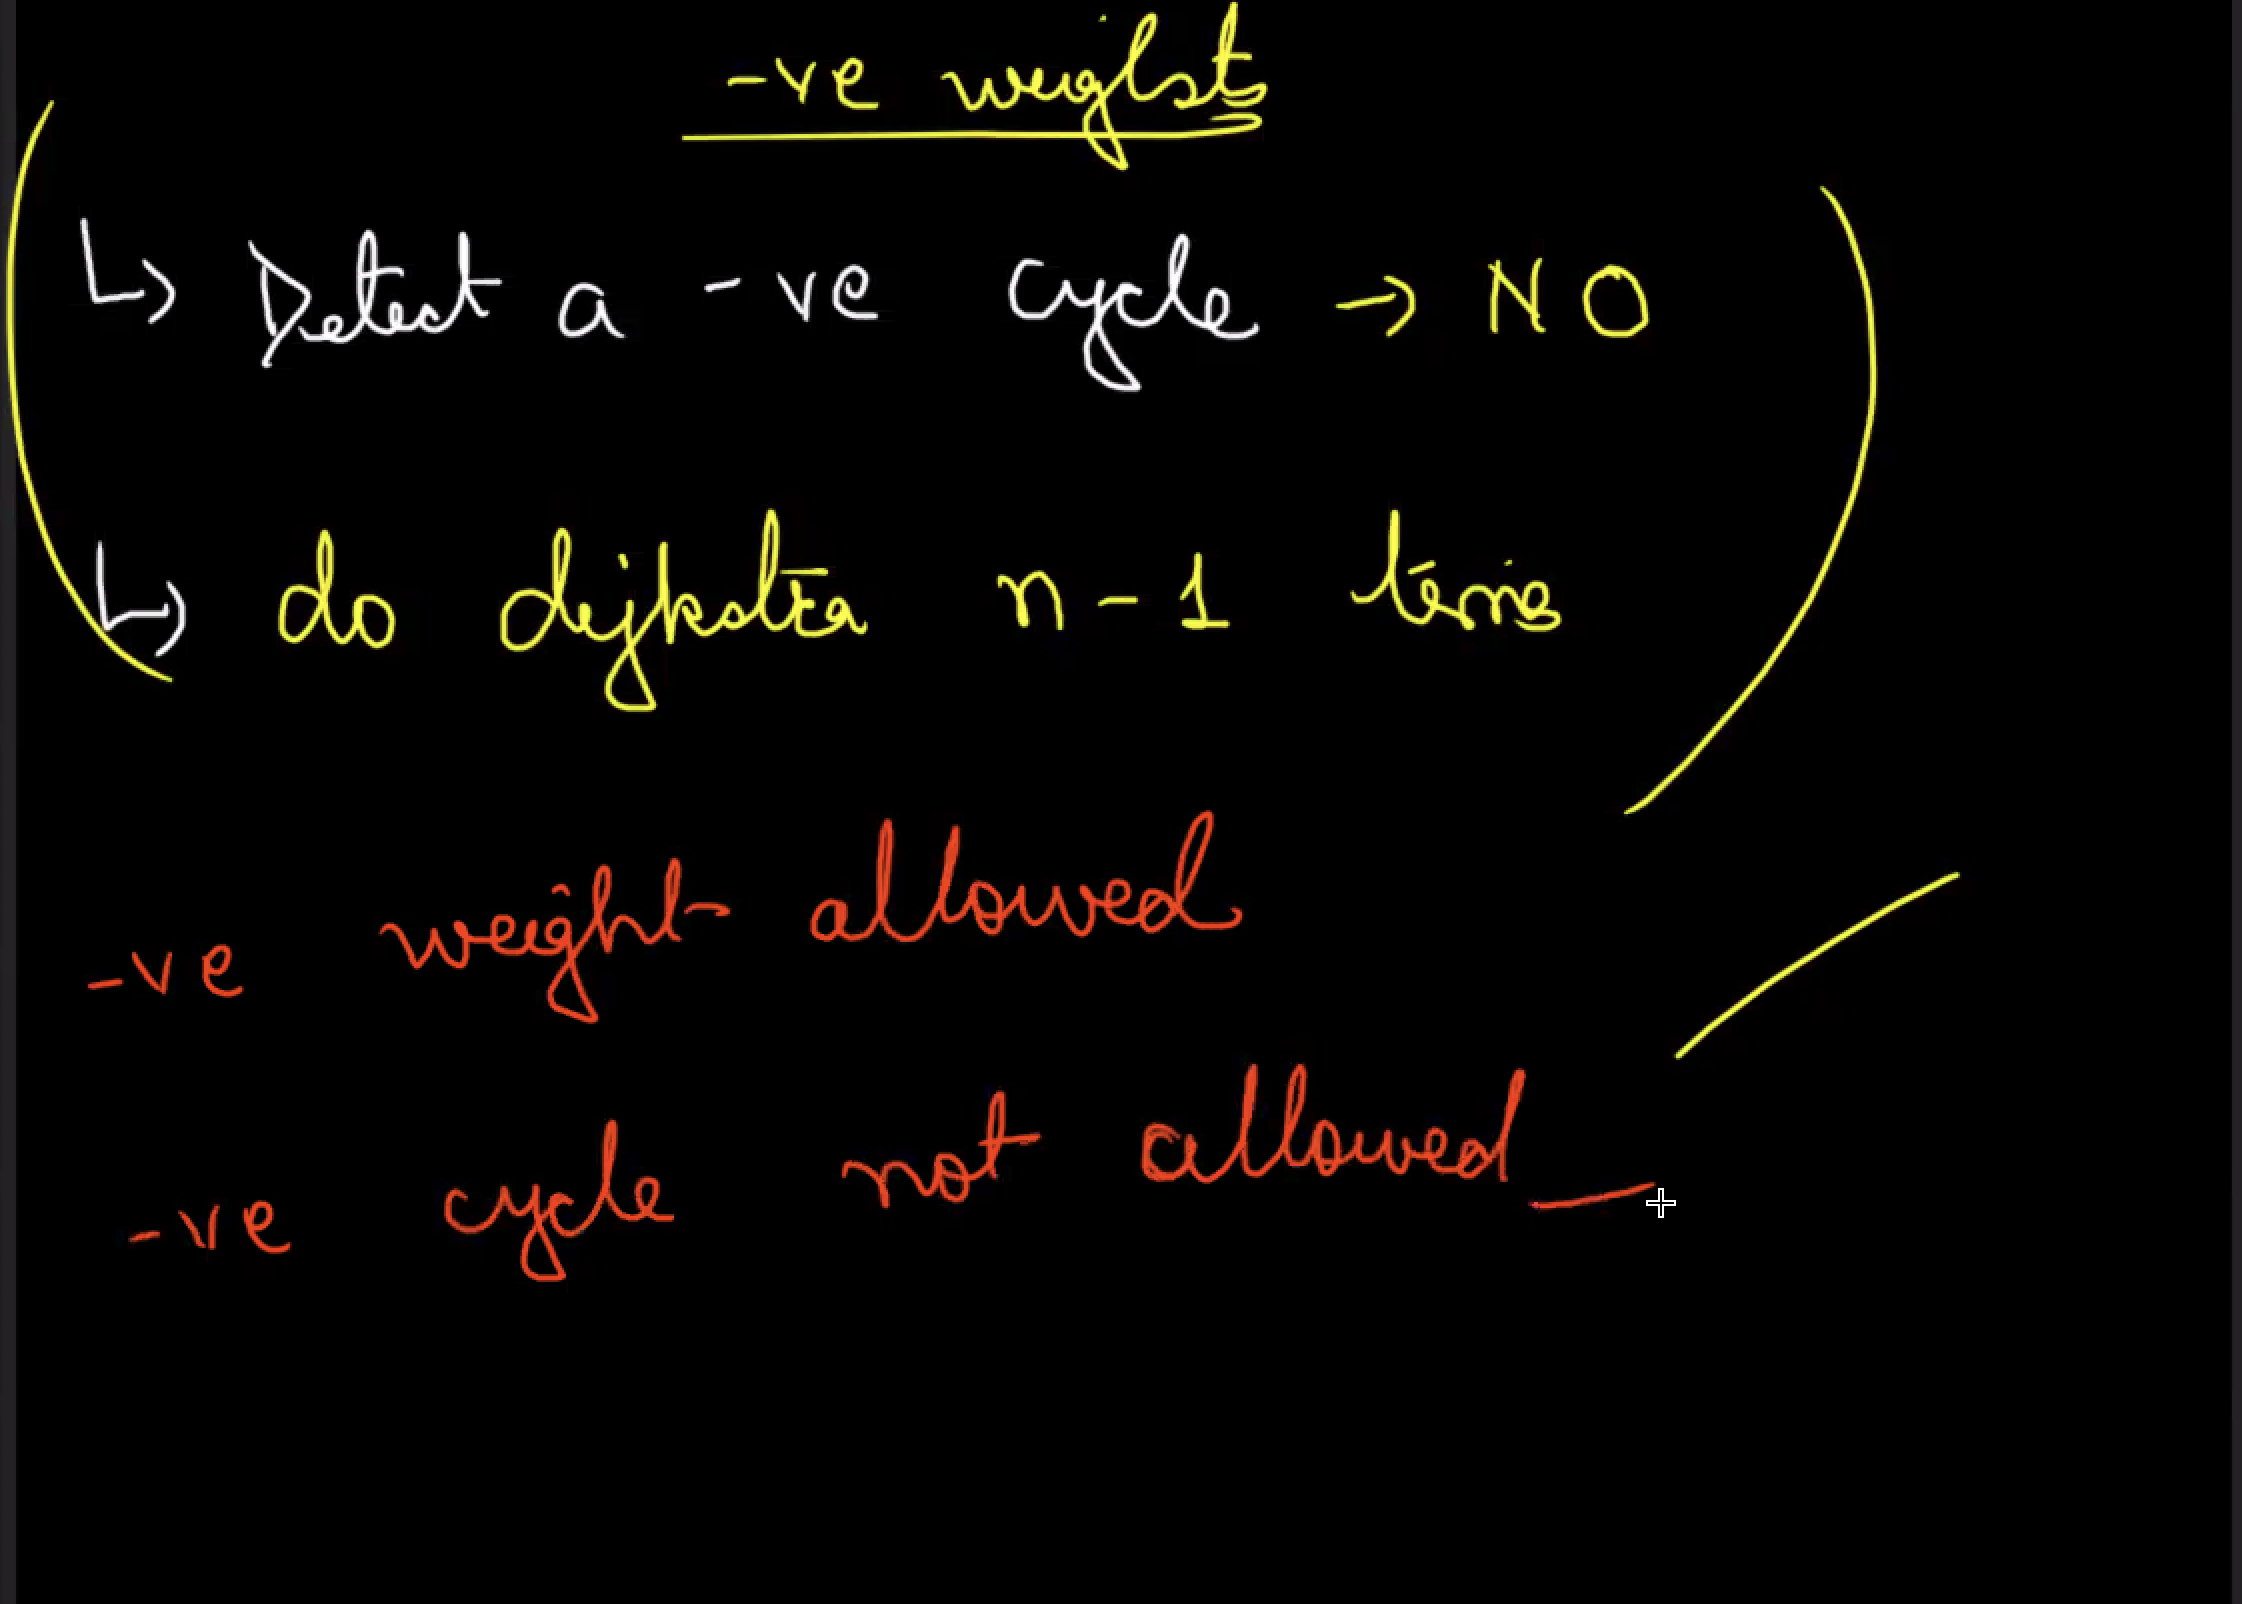 -ve weights
↳ Detect a -ve cycle → NO
↳ do dijkstra n-1 times
-ve weight allowed
-ve cycle not allowed